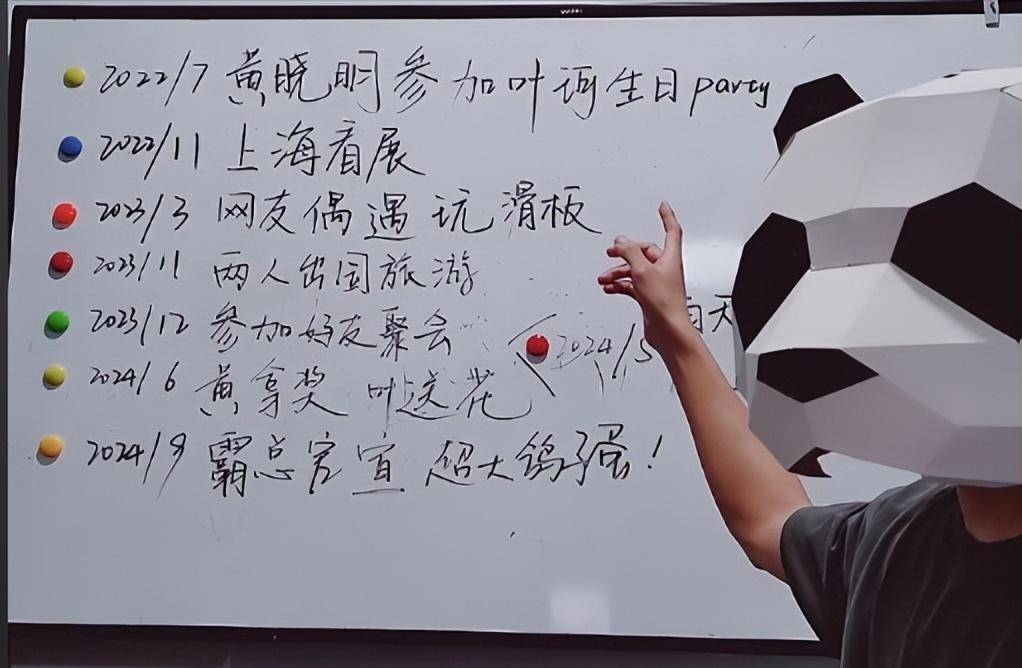 2022/7 黄晓明参加叶珂生日party
2022/11 上海看展
2023/3 网友偶遇玩滑板
2023/11 两人出国旅游
2023/12 参加好友聚会
2024/5 雨天
2024/6 黄拿奖 叶送花
2024/9 霸总官宣 超大鸽子蛋！